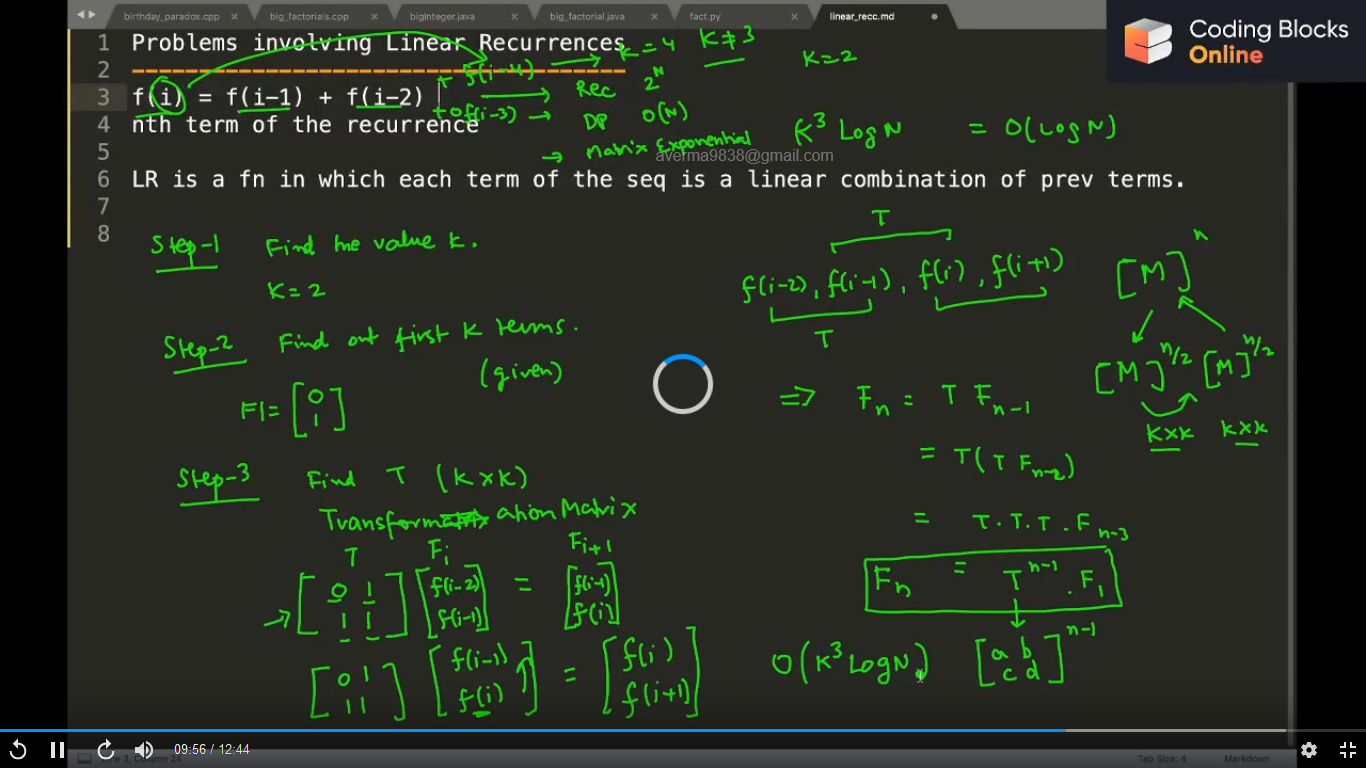 birthday_paradox.cpp × big_factorials.cpp × bigInteger.java × big_factorial.java × fact.py × linear_recc.md
Coding Blocks
Online
1 Problems involving Linear Recurrences
2 ------------------------------------
3 f(i) = f(i-1) + f(i-2)
4 nth term of the recurrence
5
6 LR is a fn in which each term of the seq is a linear combination of prev terms.
7
8
+ f(i-4) → K=4 K≠3 K=2
→ Rec 2^N
+ 0f(i-3) → DP O(N)
→ Matrix Exponential
K³ Log N = O(Log N)
averma9838@gmail.com
Step-1 Find the value k.
K=2
Step-2 Find out first K terms.
(given)
F1= [0 1]
Step-3 Find T (K×K)
Transformation Matrix
T Fi Fi+1
→ [0 1 1 1] [f(i-2) f(i-1)] = [f(i-1) f(i)]
[0 1 1 1] [f(i-1) f(i)] = [f(i) f(i+1)]
T
f(i-2), f(i-1), f(i), f(i+1)
T
[M]^n
[M]^n/2 [M]^n/2
K×K K×K
⇒ Fn = T Fn-1
= T(T Fn-2)
= T.T.T.Fn-3
Fn = T^n-1 . F1
O(K³ Log N) [a b c d]^n-1
09:56 / 12:44
Line 3, Column 24
Tab Size: 4 Markdown